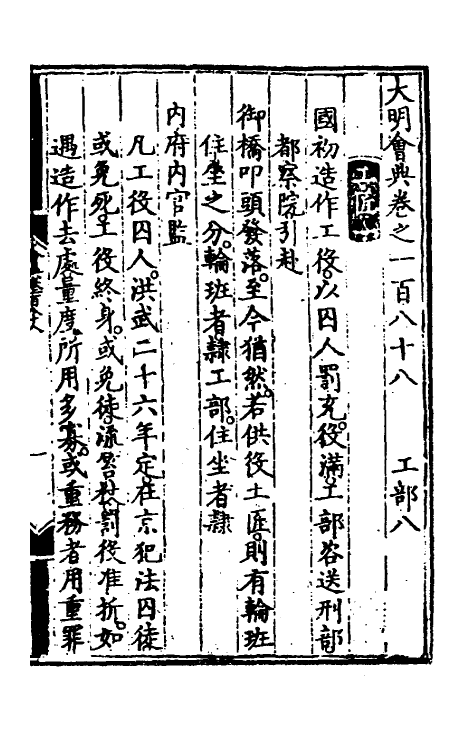 大明會典卷之一百八十八 工部八
工匠
國初造作工役以囚人罰充役滿工部咨送刑部
都察院引赴
御橋叩頭發落至今猶然若供役土匠則有輪班
住坐之分輪班者隸工部住坐者隸
内府内官監
凡工役囚人洪武二十六年定在京犯法囚徒
或免死工役終身或免徒流笞杖罰役准折如
遇造作去處量度所用多寡或重務者用重罪